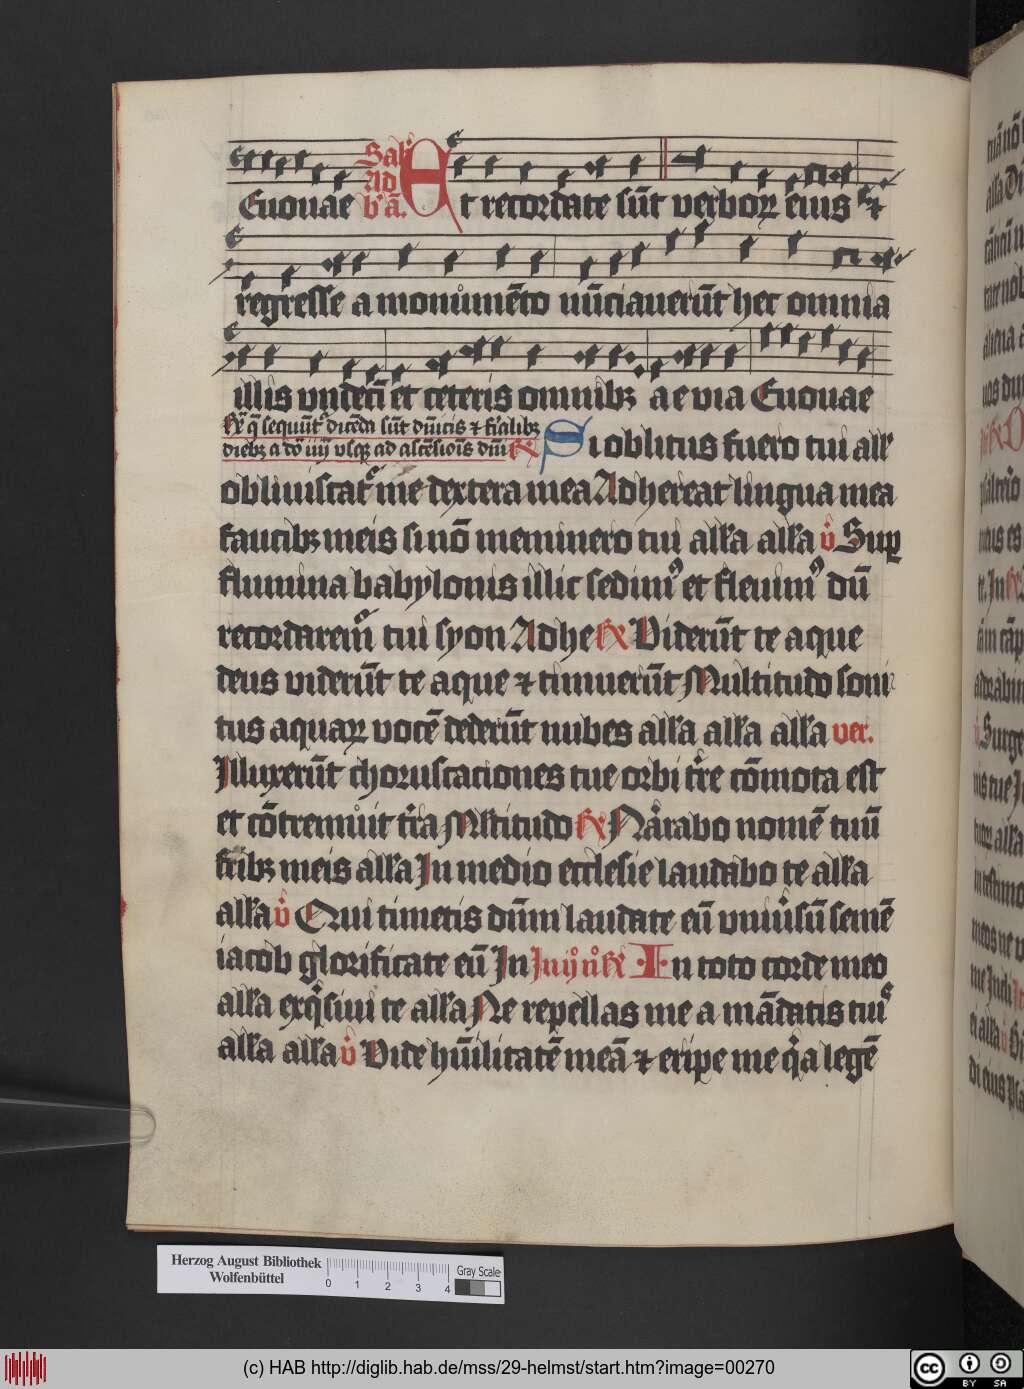 Euouae Sabb' Ad b'ā. Et recordate sūt verboꝝ eius ⁊
regresse a monumēto nūciauerūt hec omnia
illis vndeci et ceteris omnibꝫ aeuia Euouae
diebꝫ a do iiij vsqꝫ ad ascēsiois dm ℟ Si oblitus fuero tui all'
obliuiscat' me dextera mea Adhereat lingua mea
faucibꝫ meis si nō meminero tui alla alla v̊ Sup
flumina babylonis illic sedim' et fleuim' dū
recordarem̄ tui syon Adhe ℟ Viderūt te aque
deus viderūt te aque ⁊ timuerūt Multitudo soni
tus aquaꝝ vocē dederūt nubes alla alla alla ver.
Illuxerūt choruscaciones tue orbi tr̄e cōmota est
et cōtremuit tr̄a Mltitudo ℟ Narrabo nomē tuū
fribꝫ meis alla In medio ecclesie laudabo te alla
alla v̊ Qui timetis dūm laudate eū vniūsū semē
iacob glorificate eū In ℟ In toto corde meo
alla exq̄siui te alla Ne repellas me a mādatis tui'
alla alla v̊ Vide hūilitatē meā ⁊ eripe me q̄a legē
Herzog August Bibliothek
Wolfenbüttel
0 1 2 3 4
Gray Scale
(c) HAB http://diglib.hab.de/mss/29-helmst/start.htm?image=00270
cc BY SA